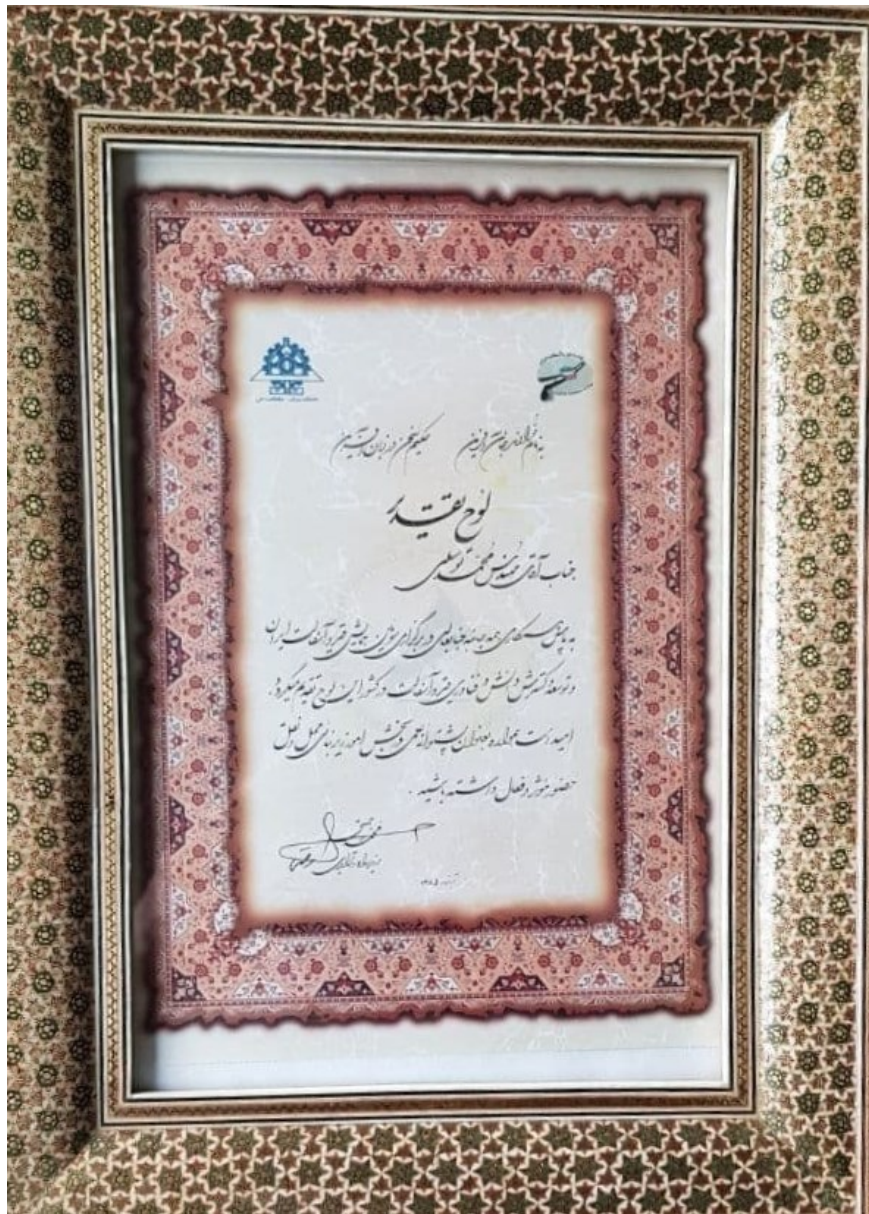 به نام خداوند جان آفرین حکیم سخن در زبان آفرین
لوح تقدیر
جناب آقای مهندس محمد توسلی
به پاس همکاری همه جانبه جنابعالی در برگزاری سومین همایش قیر و آسفالت ایران
و توسعه گسترش دانش و فناوری قیر و آسفالت در کشور این لوح تقدیم میگردد.
امید است همواره بعنوان پشتوانه علمی و بخش امور زیربنائی حمل و نقل
حضور موثر و فعال داشته باشید.
۱۳۸۵